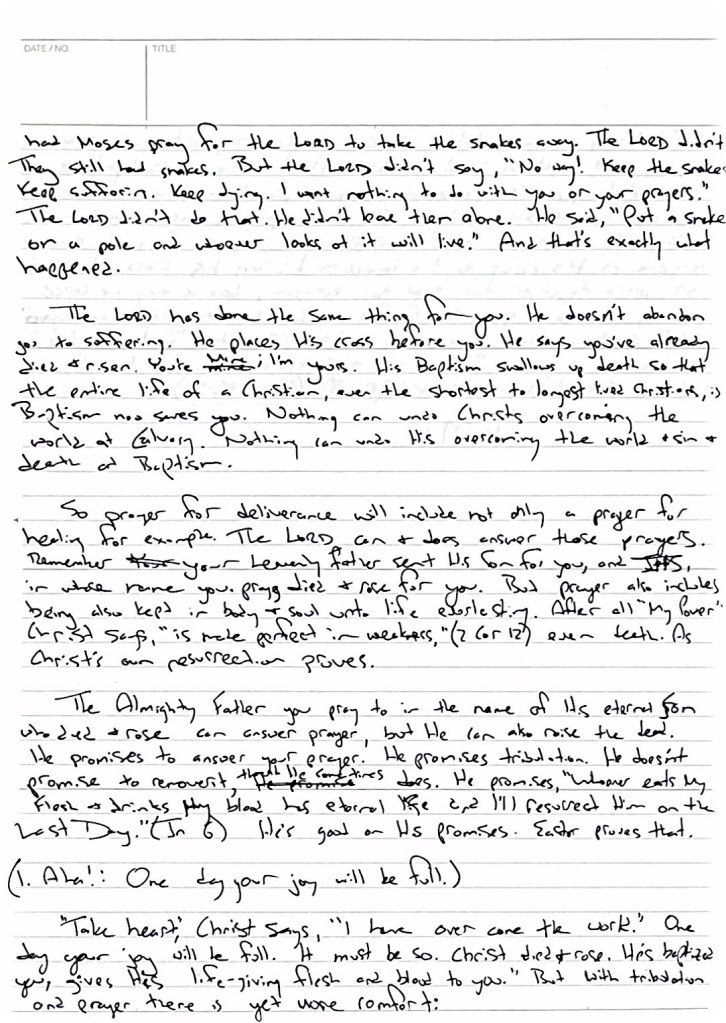 DATE / NO.
TITLE
had Moses pray for the LORD to take the snakes away. The LORD didn't
They still had snakes. But the LORD didn't say, "No way! Keep the snakes
Keep sufferin. Keep dying. I want nothing to do with you or your prayers."
The LORD didn't do that. He didn't leave them alone. He said, "Put a snake
on a pole and whoever looks at it will live." And that's exactly what
happened.
The LORD has done the same thing for you. He doesn't abandon
you to suffering. He places His cross before you. He says you've already
died & risen. You're mine; I'm yours. His Baptism swallows up death so that
the entire life of a Christian, even the shortest to longest lived Christians, is
Baptism now saves you. Nothing can undo Christs overcoming the
world at Calvary. Nothing can undo His overcoming the world & sin &
death at Baptism.
So prayer for deliverance will include not only a prayer for
healing for example. The LORD can & does answer those prayers.
Remember your heavenly father sent His Son for you, and
in whose name you pray died & rose for you. But prayer also includes
being also kept in body & soul unto life everlasting. After all "My Power"
Christ says, "is made perfect in weakness," (2 Cor 12) even death. As
Christ's own resurrection proves.
The Almighty Father you pray to in the name of His eternal Son
who died & rose can answer prayer, but He can also raise the dead.
He promises to answer your prayer. He promises tribulation. He doesn't
promise to remove it, though He sometimes does. He promises, "Whoever eats My
Flesh & drinks My blood has eternal life and I'll resurrect Him on the
Last Day." (Jn 6) He's good on His promises. Easter proves that.
(1. Aha!: One day your joy will be full.)
"Take heart," Christ says, "I have over come the world." One
day your joy will be full. It must be so. Christ died & rose. He's baptized
you, gives His life-giving flesh and blood to you." But with tribulation
and prayer there is yet more comfort: